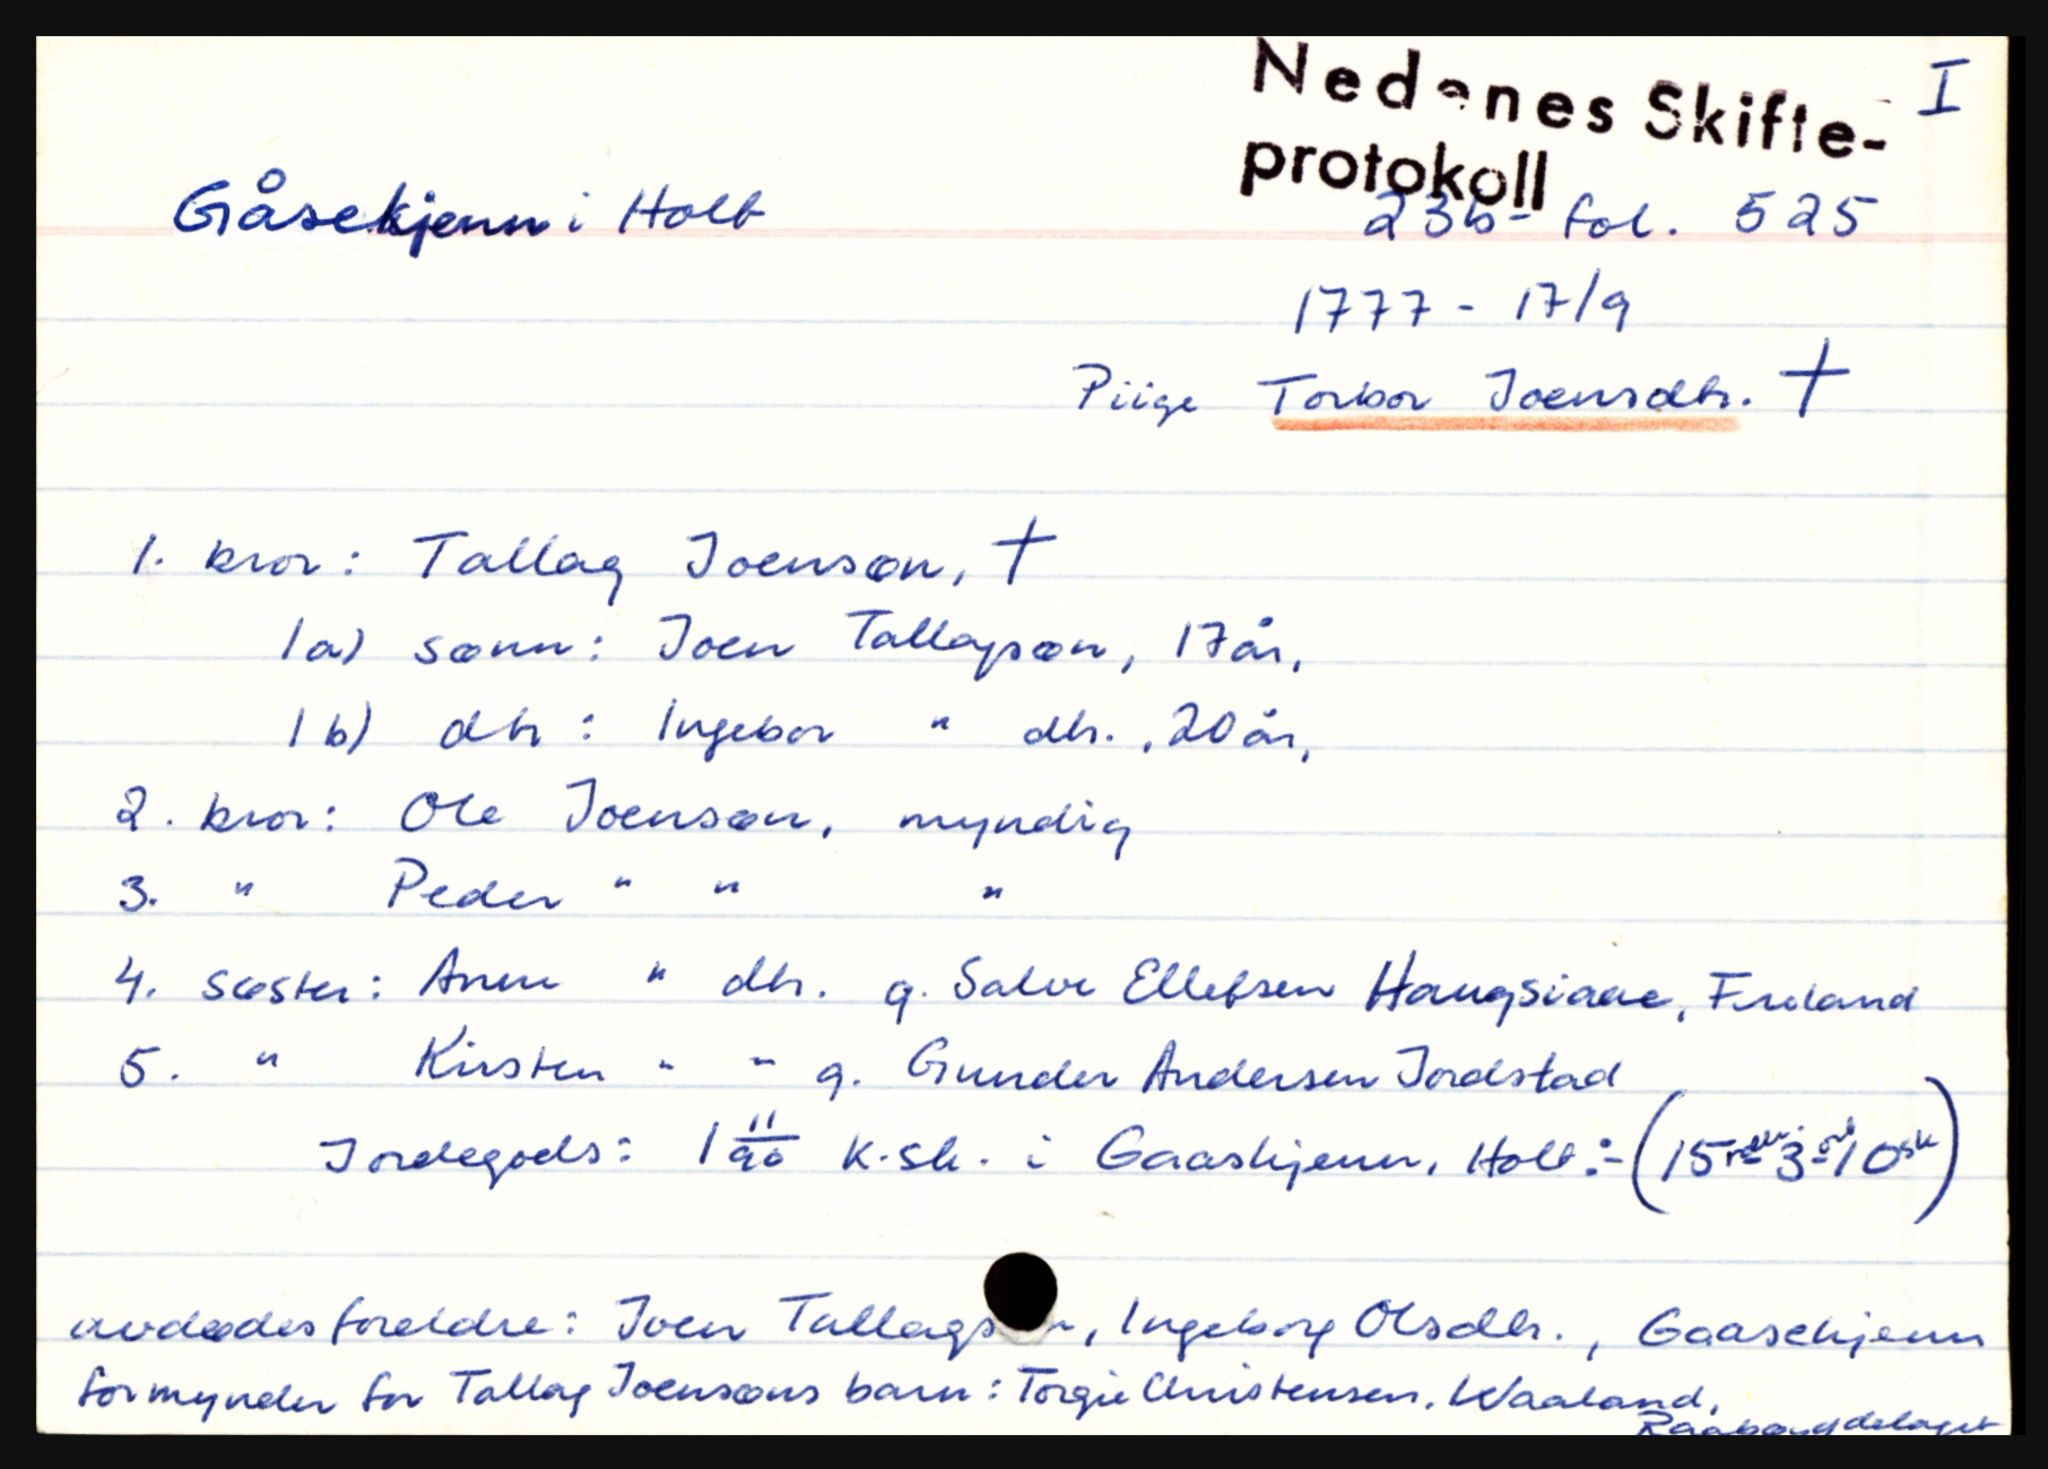 Nedenes Skifte- I
protokoll
Gåsekjenn i Holt 23b - fol. 525
1777 - 17/9
Piige Torbor Joensdtr. †
1. bror: Tallag Joensøn, †
1a) sønn: Joen Tallagsøn, 17 år,
1b) dtr: Ingebor " dtr. , 20 år,
2. bror: Ole Joensøn, myndig
3. " Peder " " "
4. søster: Anne " dtr. g. Salve Ellefsen Haugsiaae, Froland
5. " Kirsten " " g. Gunder Andersen Jordstad
Jordegods: 1 11/90 k.sk. i Gaaskjenn, Holt :- (15 rdlr 3 ort 10 sk)
avdødes foreldre: Joen Tallagsøn, Ingeborg Olsdtr. , Gaasekjenn
formynder for Tallag Joensøns barn: Torgie Christensen, Waaland,
Raabøygdelaget